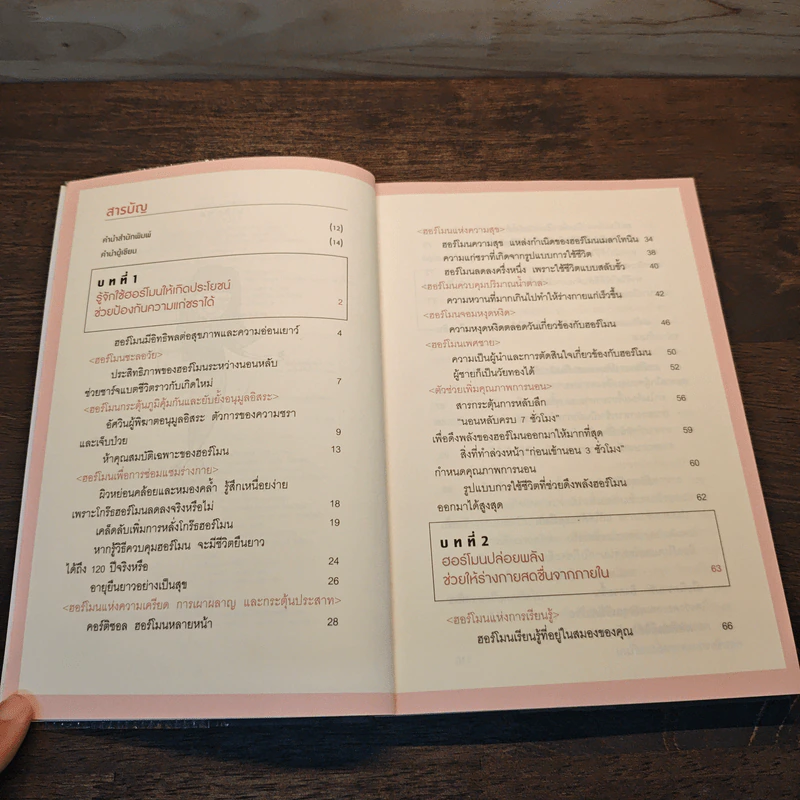 สารบัญ
คำนำสำนักพิมพ์ (12)
คำนำผู้เขียน (14)
บทที่ 1
รู้จักใช้ฮอร์โมนให้เกิดประโยชน์
ช่วยป้องกันความแก่ชราได้ 2
ฮอร์โมนมีอิทธิพลต่อสุขภาพและความอ่อนเยาว์ 4
<ฮอร์โมนชะลอวัย>
ประสิทธิภาพของฮอร์โมนระหว่างนอนหลับ
ช่วยชาร์จแบตชีวิตราวกับเกิดใหม่ 7
<ฮอร์โมนกระตุ้นภูมิคุ้มกันและยับยั้งอนุมูลอิสระ>
อัศวินผู้พิฆาตอนุมูลอิสระ ตัวการของความชรา
และเจ็บป่วย 9
ห้าคุณสมบัติเฉพาะของฮอร์โมน 13
<ฮอร์โมนเพื่อการซ่อมแซมร่างกาย>
ผิวหย่อนคล้อยและหมองคล้ำ รู้สึกเหนื่อยง่าย
เพราะโกร๊ธฮอร์โมนลดลงจริงหรือไม่ 18
เคล็ดลับเพิ่มการหลั่งโกร๊ธฮอร์โมน 19
หากรู้วิธีควบคุมฮอร์โมน จะมีชีวิตยืนยาว
ได้ถึง 120 ปีจริงหรือ 24
อายุยืนยาวอย่างเป็นสุข 26
<ฮอร์โมนแห่งความเครียด การเผาผลาญ และกระตุ้นประสาท>
คอร์ติซอล ฮอร์โมนหลายหน้า 28
<ฮอร์โมนแห่งความสุข>
ฮอร์โมนความสุข แหล่งกำเนิดของฮอร์โมนเมลาโทนิน 34
ความแก่ชราที่เกิดจากรูปแบบการใช้ชีวิต 38
ฮอร์โมนลดลงครึ่งหนึ่ง เพราะใช้ชีวิตแบบสลับขั้ว 40
<ฮอร์โมนควบคุมปริมาณน้ำตาล>
ความหวานที่มากเกินไปทำให้ร่างกายแก่เร็วขึ้น 42
<ฮอร์โมนจอมหงุดหงิด>
ความหงุดหงิดตลอดวันเกี่ยวข้องกับฮอร์โมน 46
<ฮอร์โมนเพศชาย>
ความเป็นผู้นำและการตัดสินใจเกี่ยวข้องกับฮอร์โมน 50
ผู้ชายก็เป็นวัยทองได้ 52
<ตัวช่วยเพิ่มคุณภาพการนอน>
สารกระตุ้นการหลับลึก 56
"นอนหลับครบ 7 ชั่วโมง"
เพื่อดึงพลังของฮอร์โมนออกมาให้มากที่สุด 59
สิ่งที่ทำล่วงหน้า "ก่อนเข้านอน 3 ชั่วโมง"
กำหนดคุณภาพการนอน 60
รูปแบบการใช้ชีวิตที่ช่วยดึงพลังฮอร์โมน
ออกมาได้สูงสุด 62
บทที่ 2
ฮอร์โมนปล่อยพลัง
ช่วยให้ร่างกายสดชื่นจากภายใน 63
<ฮอร์โมนแห่งการเรียนรู้>
ฮอร์โมนเรียนรู้ที่อยู่ในสมองของคุณ 66